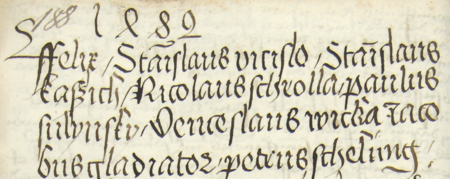 188
1889
ffelix, Stāislaus vicislo, Stāislaus
kaßzich, Nicolaus schrolla, paulus
suwnsky, Venceslaus wicka Jaco
bus gladiator, petrus schelling,